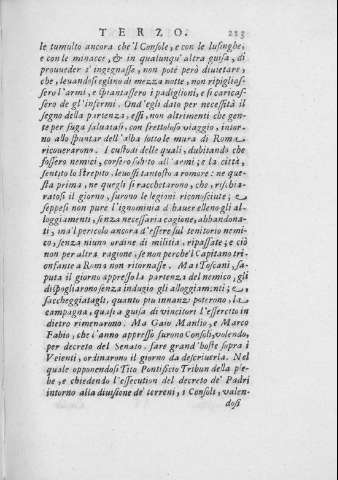 TERZO. 223
le tumulto ancora che'l Console, e con le lusinghe,
e con le minacce, & in qualunqu' altra guisa, di
proueder s'ingegnasse, non potè però diuietare,
che, leuandosi eglino di mezza notte, non ripiglias-
sero l'armi, e spiantassero i padiglioni, e si caricas-
sero de gl'infermi. Ond'egli dato per necessità il
segno della partenza, essi, non altrimenti che gen-
te per fuga saluatasi, con frettoloso viaggio, intor-
no allo spuntar dell'alba sotto le mura di Roma
ricouerarono. I custodi delle quali, dubitando che
fossero nemici, corsero subito all'armi; e la città,
sentito lo strepito, leuossi tantosto a romore: ne que-
sta prima, ne quegli si racchetarono, che, rischia-
ratosi il giorno, furono le legioni riconosciute; e
seppesi non pure l'ignominia d'hauer elleno gli al-
loggiamenti, senza necessaria cagione, abbandona-
ti, ma'l pericolo ancora d'essere sul tenitorio nemi-
co, senza niuno ordine di militia, ripassate; e ciò
non per altra ragione, se non perche'l Capitano tri-
onfante a Roma non ritornasse. Ma i Toscani, sa-
puta il giorno appresso la partenza del nemico, gli
dispogliarono senza indugio gli alloggiamenti; e,
saccheggiatagli, quanto piu innanzi poterono, la
campagna, quasi a guisa di vincitori l'essercito in
dietro rimenarono. Ma Gaio Manlio, e Marco
Fabio, che l'anno appresso furono Consoli, volendo,
per decreto del Senato, fare grand'hoste sopra i
Veienti, ordinarono il giorno da descriuerla. Nel
quale opponendosi Tito Pontificio Tribun della ple-
be, e chiedendo l'essecution del decreto de' Padri
intorno alla diuisione de' terreni, i Consoli, valen-
dosi